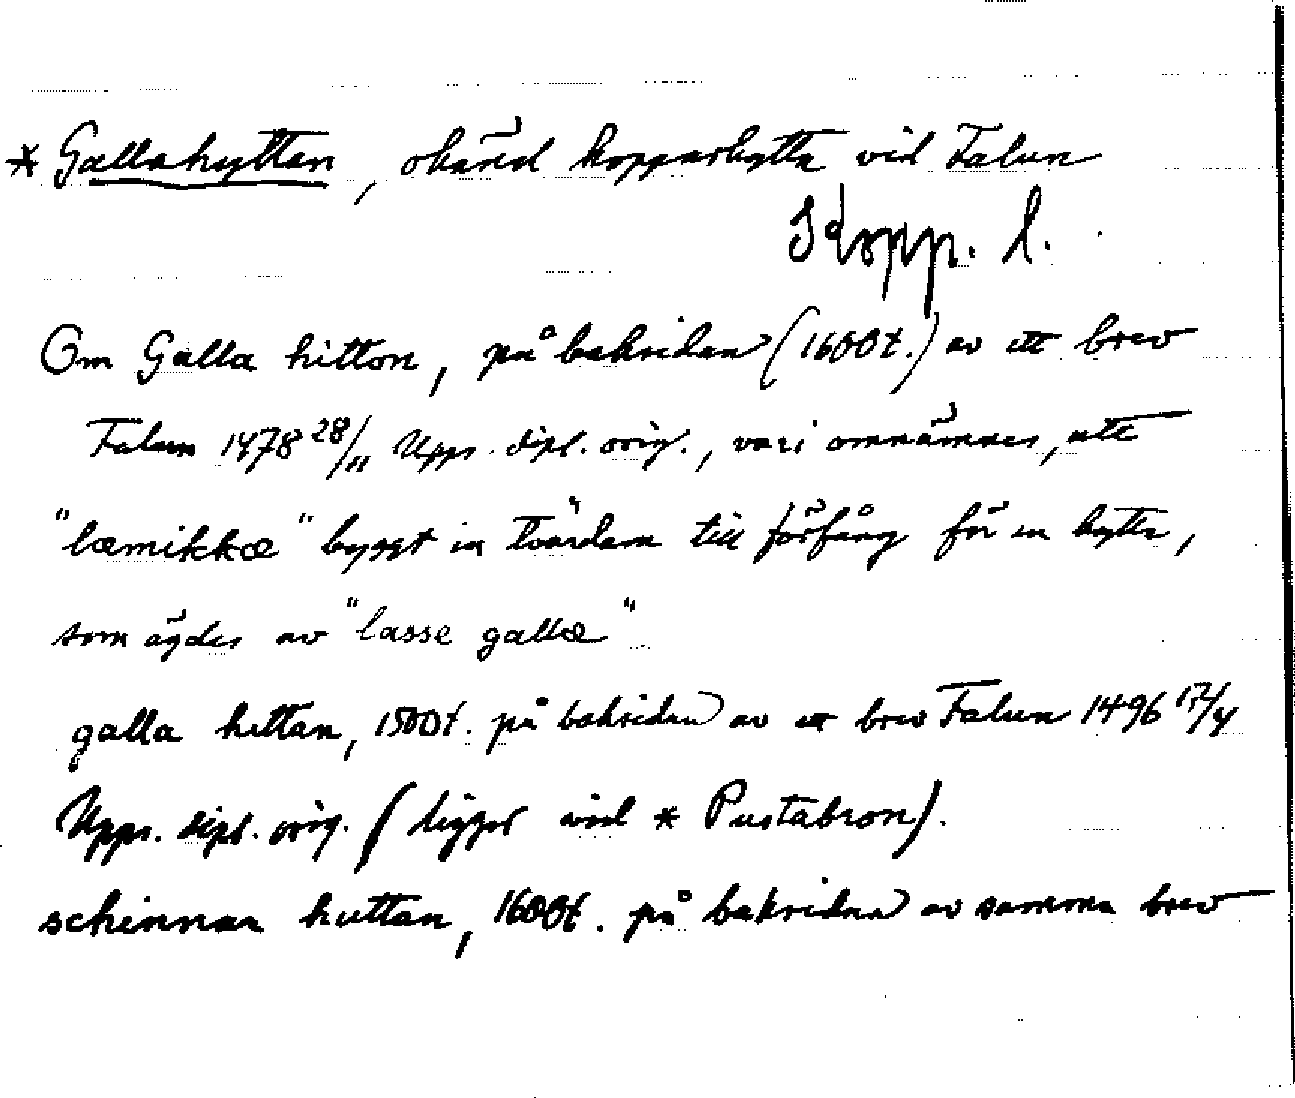 * Gallahyttan, okänd kopparhytta vid Falun
St Kopp. l.
Om Galla hitton, på baksidan (1600t.) av ett brev
Falun 1478 28/11 Upps. dipl. orig., vari omnämnes, att
"læmikkæ" byggt en tvärdam till förfång för en hytta,
som ägdes av "lasse gallæ"
galla hittan, 1500t. på baksidan av ett brev Falun 1496 17/4
Upps. dipl. orig. (ligger vid * Pustabron).
schinnar huttan, 1600t. på baksidan av samma brev